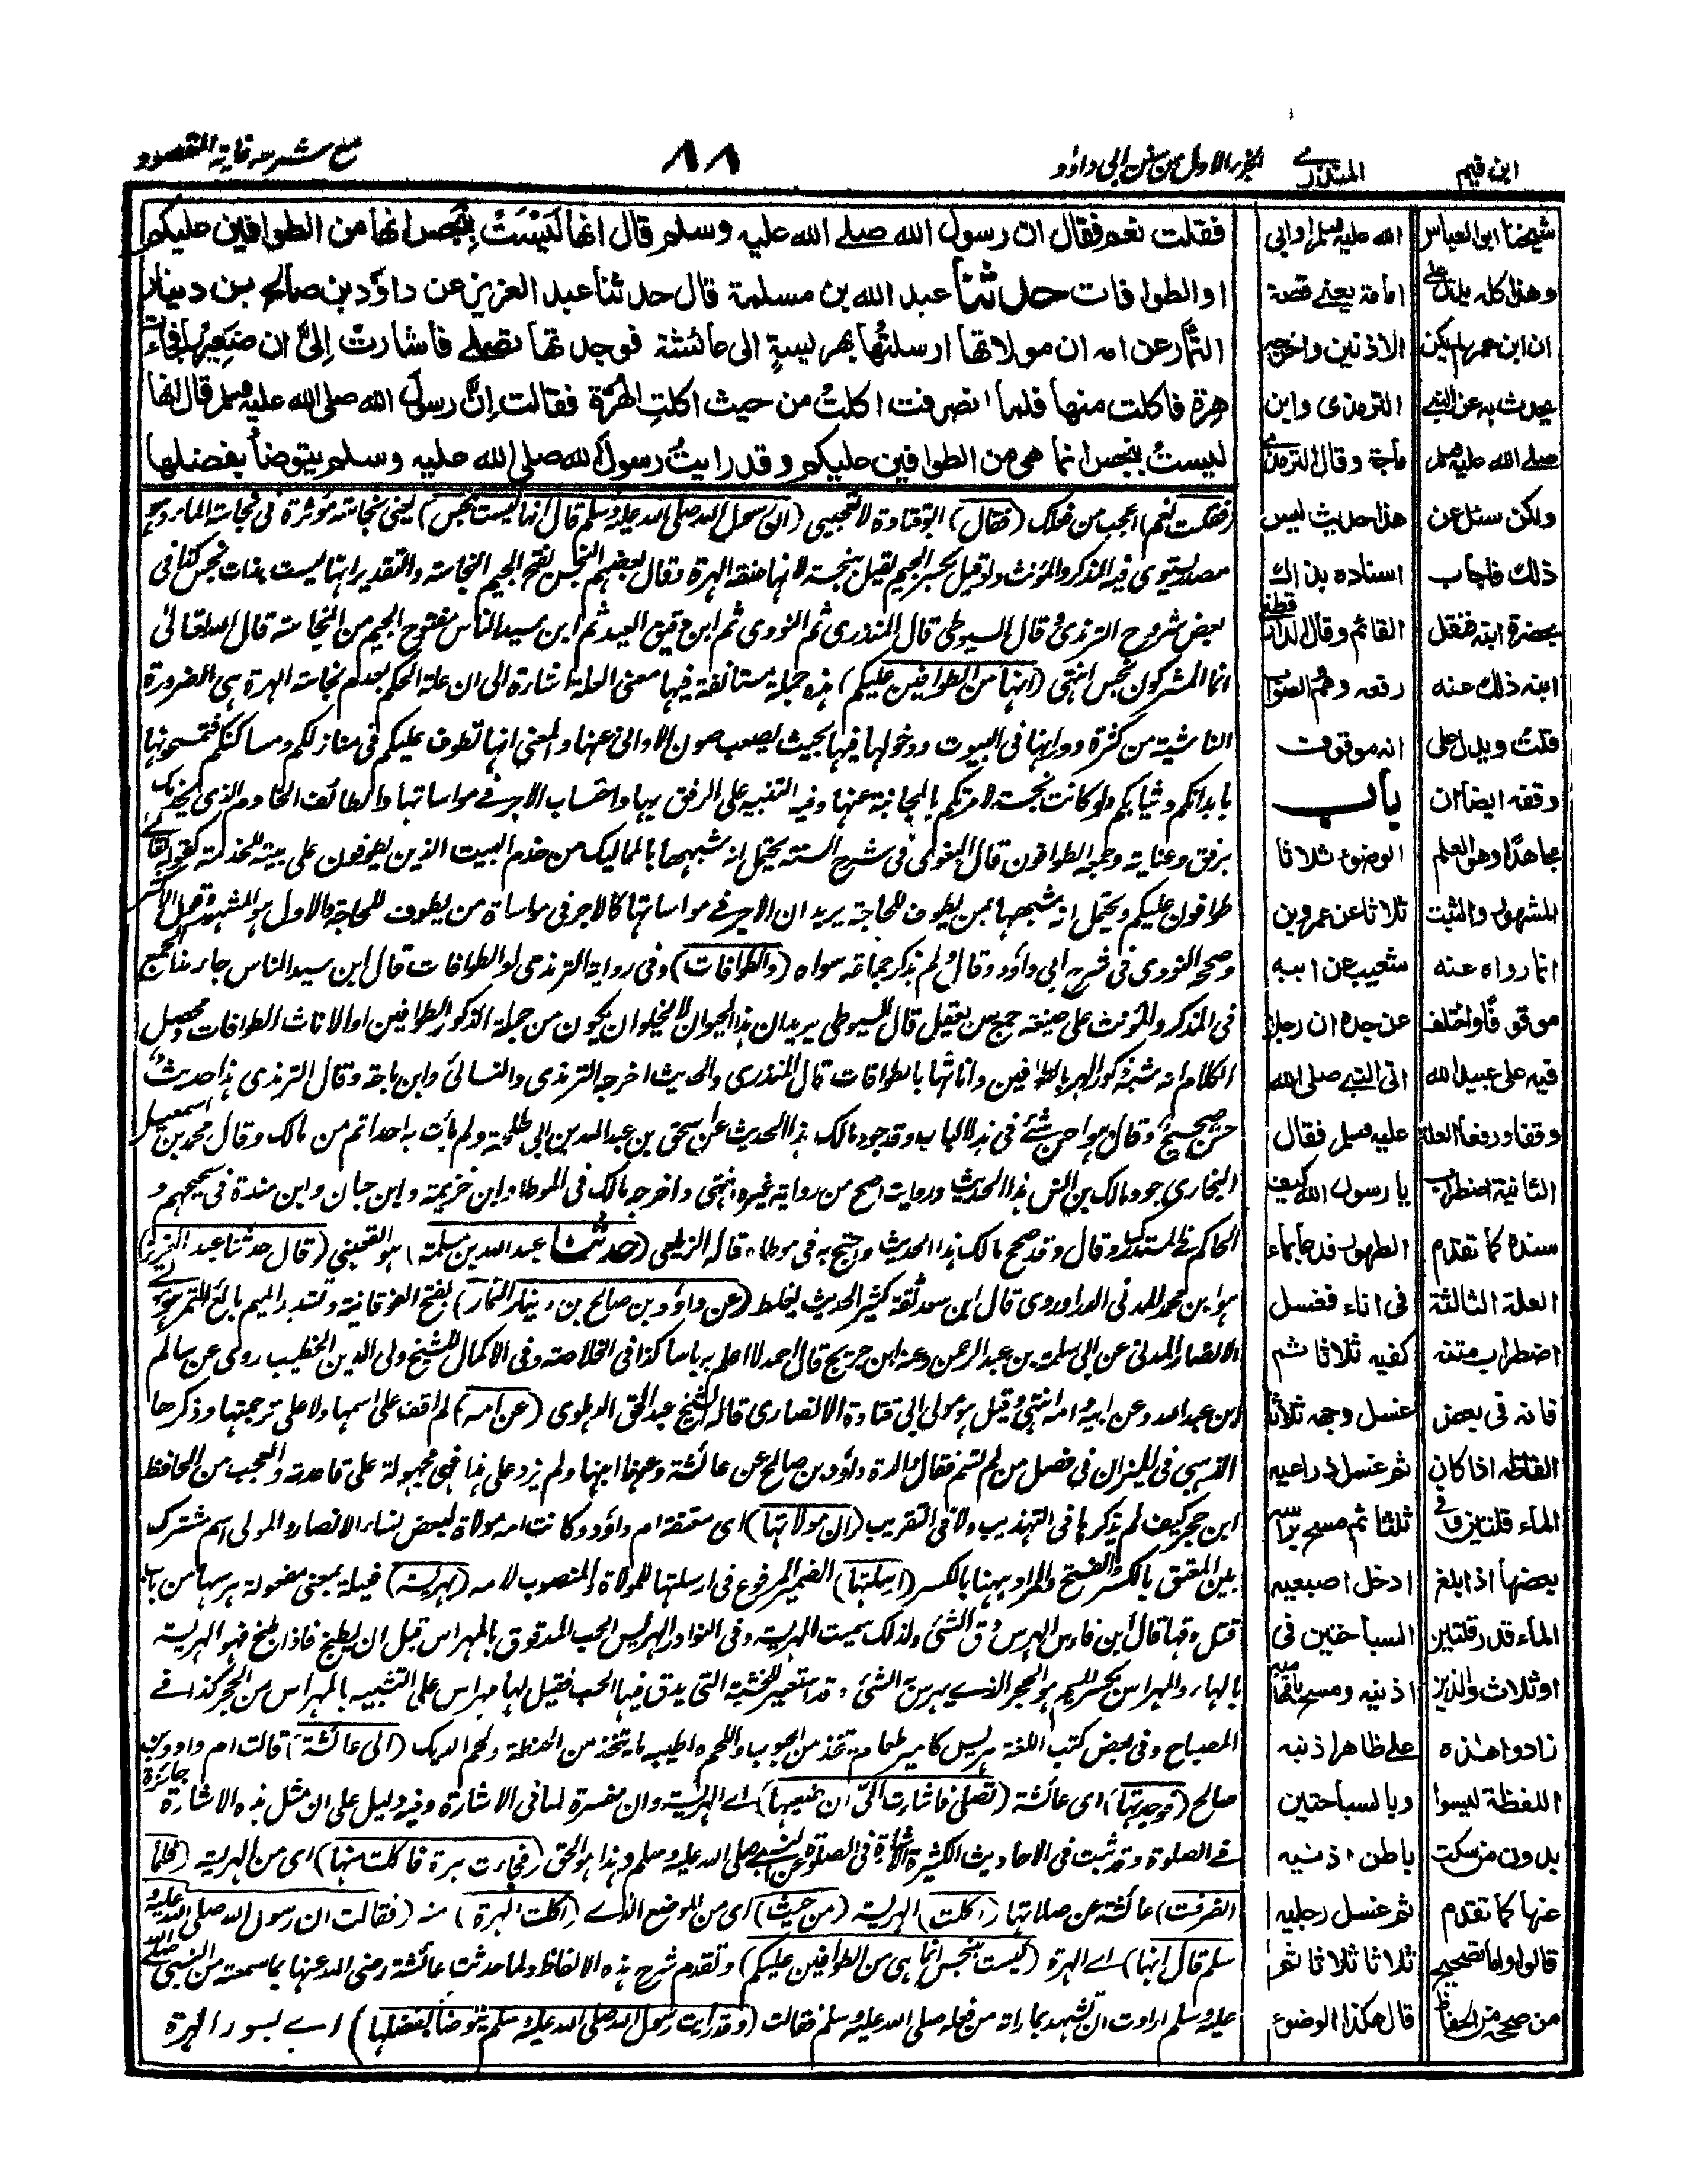 ابن قيم
المنذري
الجزء الاول من سنن ابي داؤد
٨٨
مع شرحه غاية المقصود
فقلت نعم فقال ان رسول الله صلے الله عليه وسلم قال انها لَيْسَتْ بِنَجَسٍ انها من الطوافين عليكم
او الطوافات حدثنا عبد الله بن مسلمة قال حدثنا عبد العزيز عن داؤد بن صالح بن دينار
التَّمَّار عن امه ان مولاتها ارسلتْها بهريسةٍ الى عائشة فوجدتها تصلے فاشارت اِلَىَّ ان ضَعِيْها فجاءت
هرة فاكلت منها فلما انصرفت اكلتْ من حيث اكلتِ الهرّة فقالت اِنَّ رسولَ الله صلى الله عليه وسلم قال انها
ليستْ بنجس انما هى من الطوافين عليكم وقد رايتُ رسولَ الله صلى الله عليه وسلم يتوضأ بفضلها
(فقلت نعم) اعجب من فعلك (فقال) ابو قتادة لا تعجبى (ان رسول الله صلى الله عليه وسلم قال انها ليست بنجس) يعنى نجاسته مؤثرة فى نجاسة الماء وهو
مصدر يستوى فيه المذكر والمؤنث ولو قيل بكسر الجيم لقيل بنجسة لانها صفة الهرة وقال بعضهم النجس بفتح الجيم النجاسة والتقدير انها ليست بذات نجس كذا فى
بعض شروح الترمذى وقال السيوطى قال المنذرى ثم النووى ثم ابن دقيق العيد ثم ابن سيد الناس مفتوح الجيم من النجاسة قال الله تعالى
انما المشركون نجس انتهى (انها من الطوافين عليكم) هذه جملة مستانفة فيها معنى العلة اشارة الى ان علة الحكم بعدم نجاسة الهرة هى الضرورة
الناشية من كثرة دورانها فى البيوت ودخولها فيها بحيث يصعب صون الاوانى عنها والمعنى انها تطوف عليكم فى منازلكم ومساكنكم فتمسحونها
بابدانكم وثيابكم ولو كانت نجسة لامرتكم بالمجانبة عنها وفيه التنبيه على الرفق بها واحتساب الاجر فى مواساتها والطائف الخادم الذى يخدمك
برفق وعناية وجمعه الطوافون قال البغوى فى شرح السنة يحتمل انه شبهها بالمماليك من خدم البيت الذين يطوفون على بيته للخدمة كقوله تعالى
طوافون عليكم ويحتمل انه شبهها بمن يطوف للحاجة يريد ان الاجر فى مواساتها كالاجر فى مواساة من يطوف للحاجة والاول هو المشهور وقول الاكثر
وصححه النووى فى شرح ابى داؤد وقال ولم يذكر جماعة سواه (والطوافات) وفى رواية الترمذى او الطوافات قال ابن سيد الناس جاء هذا الجمع
فى المذكر والمؤنث على صيغة جمع من يعقل قال السيوطى يريد ان هذا الحيوان لا يخلو ان يكون من جملة الذكور الطوافين او الاناث الطوافات ومحصل
الكلام انه شبه ذكور الهر بالطوافين واناثها بالطوافات قال المنذرى والحديث اخرجه الترمذى والنسائى وابن ماجة وقال الترمذى هذا حديث
حسن صحيح وقال هو احسن شئ فى هذا الباب وقد جود مالك هذا الحديث عن اسحق بن عبد الله بن ابى طلحة ولم يأت به احد اتم من مالك وقال محمد بن اسمعيل
البخارى جود مالك بن انس هذا الحديث وروايته اصح من رواية غيره انتهى واخرجه مالك فى الموطا وابن خزيمة وابن حبان وابن مندة فى صحيحهم و
الحاكم فى المستدرك وقال وقد صحح مالك هذا الحديث واحتج به فى موطاه قاله الزيلعى (حدثنا عبد الله بن مسلمة) هو القعنبى (قال حدثنا عبد العزيز)
هو ابن محمد المدنى الدراوردى قال ابن سعد ثقة كثير الحديث يغلط (عن داؤد بن صالح بن دينار التمار) بفتح الفوقانية وتشديد الميم بائع التمر مولى
الانصار المدنى عن ابى سلمة بن عبد الرحمن وعنه ابن جريج قال احمد لا اعلم به باسا كذا فى الخلاصة وفى الاكمال للشيخ ولى الدين الخطيب روى عن سالم
ابن عبد الله وعن ابيه وامه انتهى وقيل هو مولى ابى قتادة الانصارى قاله الشيخ عبد الحق الدهلوى (عن امه) لم اقف على اسمها ولا على ترجمتها وذكرها
الذهبى فى الميزان فى فصل من لم تسم فقال والدة داؤد بن صالح عن عائشة وعنها ابنها ولم يزد على هذا فهى مجهولة على قاعدته والعجب من الحافظ
ابن حجر كيف لم يذكرها فى التهذيب ولا فى التقريب (ان مولاتها) اى معتقة ام داؤد وكانت امه مولاة لبعض نساء الانصار والمولى اسم مشترك
بين المعتق بالكسر والفتح والمراد ههنا بالكسر (ارسلتها) الضمير المرفوع فى ارسلتها للمولاة والمنصوب لامه (بهريسة) فعيلة بمعنى مفعولة هرسها من باب
قتل دقها قال ابن فارس الهرس دق الشئ ولذلك سميت الهريسة وفى النوادر الهريس الحب المدقوق بالمهراس قبل ان يطبخ فاذا طبخ فهو الهريسة
بالهاء والمهراس بكسر الميم هو الحجر الذى يهرس به الشئ وقد استعير للخشبة التى يدق فيها الحب فقيل لها مهراس على التشبيه بالمهراس من الحجر كذا فى
المصباح وفى بعض كتب اللغة هريس كامير طعام يتخذ من الحبوب واللحم واطيبه ما يتخذ من الحنطة ولحم الديك (الى عائشة) قالت ام داود بن
صالح (فوجدتها) اى عائشة (تصلى فاشارت الى ان ضعيها) اى الهريسة وان مفسرة لما فى الاشارة وفيه دليل على ان مثل هذه الاشارة جائزة
فى الصلوة وقد ثبت فى الاحاديث الكثيرة الاشارة فى الصلوة عن النبى صلى الله عليه وسلم وهذا هو الحق (فجاءت هرة فاكلت منها) اى من الهريسة (فلما
انصرفت) عائشة عن صلاتها (اكلت) الهريسة (من حيث) اى من الموضع الذى (اكلت الهرة) منه (فقالت ان رسول الله صلى الله عليه و
سلم قال انها) اى الهرة (ليست بنجس انما هى من الطوافين عليكم) وتقدم شرح هذه الالفاظ ولما حدثت عائشة رضى الله عنها بما سمعته من النبى صلى الله
عليه وسلم ارادت ان تشهد بما راته من فعله صلى الله عليه وسلم فقالت (وقد رايت رسول الله صلى الله عليه وسلم يتوضأ بفضلها) اى بسور الهرة
الله عليه وسلم او ابى
امامة يعنے قصة
الاذنين واخرجه
الترمذى وابن
ماجة وقال الترمذى
هذا حديث ليس
اسناده بذاك
القائم وقال الدارقطنى
رفعه وهم والصواب
انه موقوف
باب
الوضوء ثلاثا
ثلاثا عن عمرو بن
شعيب عن ابيه
عن جده ان رجلا
اتى النبے صلى الله
عليه وسلم فقال
يا رسول الله كيف
الطهور فدعا بماء
فى اناء فغسل
كفيه ثلاثا ثم
غسل وجهه ثلاثا
ثم غسل ذراعيه
ثلثا ثم مسح براسه
ادخل اصبعيه
السباحتين فى
اذنيه ومسح بابهاميه
علے ظاهر اذنيه
وبالسباحتين
باطن اذنيه
ثم غسل رجليه
ثلاثا ثلاثا ثم
قال هكذا الوضوء
شيخنا ابو العباس
وهذا كله يدل على
ان ابن عمر لم يكن
يحدث به عن النبے
صلے الله عليه وسلم
ولكن سئل عن
ذلك فاجاب
بحضرة ابنه فنقل
ابنه ذلك عنه
قلت ويدل على
وقفه ايضا ان
مجاهدا وهو العلم
المشهور والثبت
انما رواه عنه
موقوفا واختلف
فيه على عبيد الله
وقفا ورفعا العلة
الثانية اضطراب
سنده كما تقدم
العلة الثالثة
اضطراب متنه
فانه فى بعض
الفاظه اذا كان
الماء قلتين وفى
بعضها اذا بلغ
الماء قدر قلتين
او ثلاث والذين
زادوا هذه
اللفظة ليسوا
بدون من سكت
عنها كما تقدم
قالوا واما تصحيح
من صححه من الحفاظ